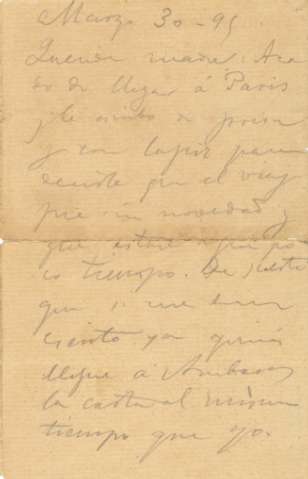 Marzo 30-95.
Querida madre: Aca
bo de llegar á Paris
y le escribo de prisa
y con lapiz para
decirle que el viaj
fue sin novedad y
que estaré aqui po
co tiempo. De suerte
que si me
escrito ya quizás
llegue á
la carta al mismo
tiempo que yo.